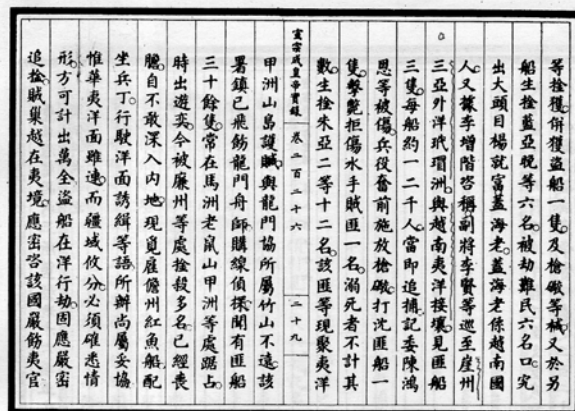 等捡獲併獲盜船一隻及槍礮等械又於另
船生捡藍亞晚等六名被劫難民六名口究
出大頭目楊就富蓋海老蓋海老係越南國
人又據李增階咨稱副將李賢等巡至崖州
三亞外洋玳瑁洲與越南夷洋接壤見匪船
三隻每船約一二千人當即追捕記委陳鴻
恩等被傷兵役奮前施放槍礮打沈匪船一
隻擊斃拒傷水手賊匪一名溺死者不計其
數生捡朱亞二等十二名該匪等現聚夷洋
宣宗成皇帝實錄 卷二百二十六 二十九
甲洲山島護贓與龍門協所屬竹山不遠該
署鎮已飛飭龍門舟師購線偵探聞有匪船
三十餘隻常在馬洲老鼠山甲洲等處踞占
時出遊奕今被廉州等處捡殺多名已經喪
膽自不敢深入內地現覓雇儋州紅魚船配
坐兵丁行駛洋面誘緝等語所辦尚屬妥協
惟華夷洋面雖連而疆域攸分必須確悉情
形方可計出萬全盜船在洋行劫固應嚴密
追捡賊巢越在夷境應密咨該國嚴飭夷官